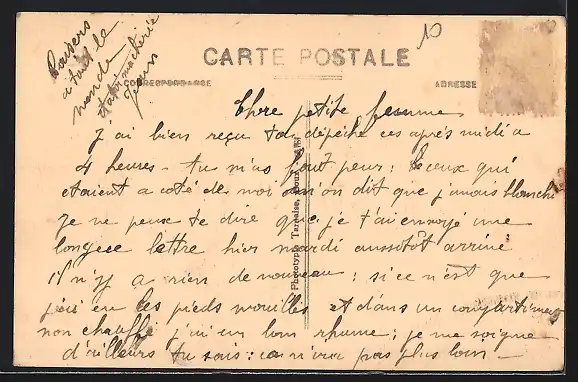 Baisers
à tout le
monde
Jean
10
CARTE POSTALE
CORRESPONDANCE
ADRESSE
Chere petite femme
J'ai bien reçu ta dépêche ces après midi a
4 heures - tu m'as fait peur : Ceux qui
etaient a coté de moi m'on dit que j'avais blanchi
Je ne peux te dire que je t'ai envoyé une
longue lettre hier mardi aussitôt arrivé
il n'y a rien de nouveau ; si ce n'est que
j'ai eu les pieds mouillés et dans un compartiment
non chauffé j'ai un bon rhume ; je me soigne
d'ailleurs tu sais : ca n'ira pas plus loin -
Phototypie Tarnaise,